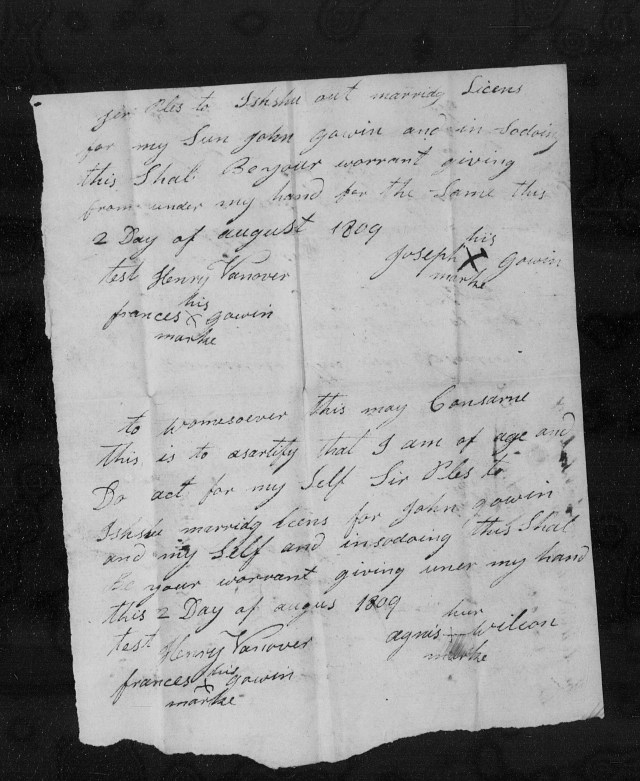 Ser Ples to Ishshu out marridg Licens
for my Sun John gowin and in Sodoing
this Shal Be your warrant giving
from under my hand for the Same this
2 Day of august 1809
his
Joseph X gowin
marke
test Henry Vanover
his
frances X gowin
marke
to womesoever this may Consarne
this is to asartify that I am of age and
Do act for my Self Sir Ples to
Ishshu marridg licens for John gowin
and my Self and insodoing this Shal
be your warrant giving uner my hand
this 2 Day of augus 1809
hur
agnis Wilson
marke
test Henry Vanover
his
frances X gowin
marke